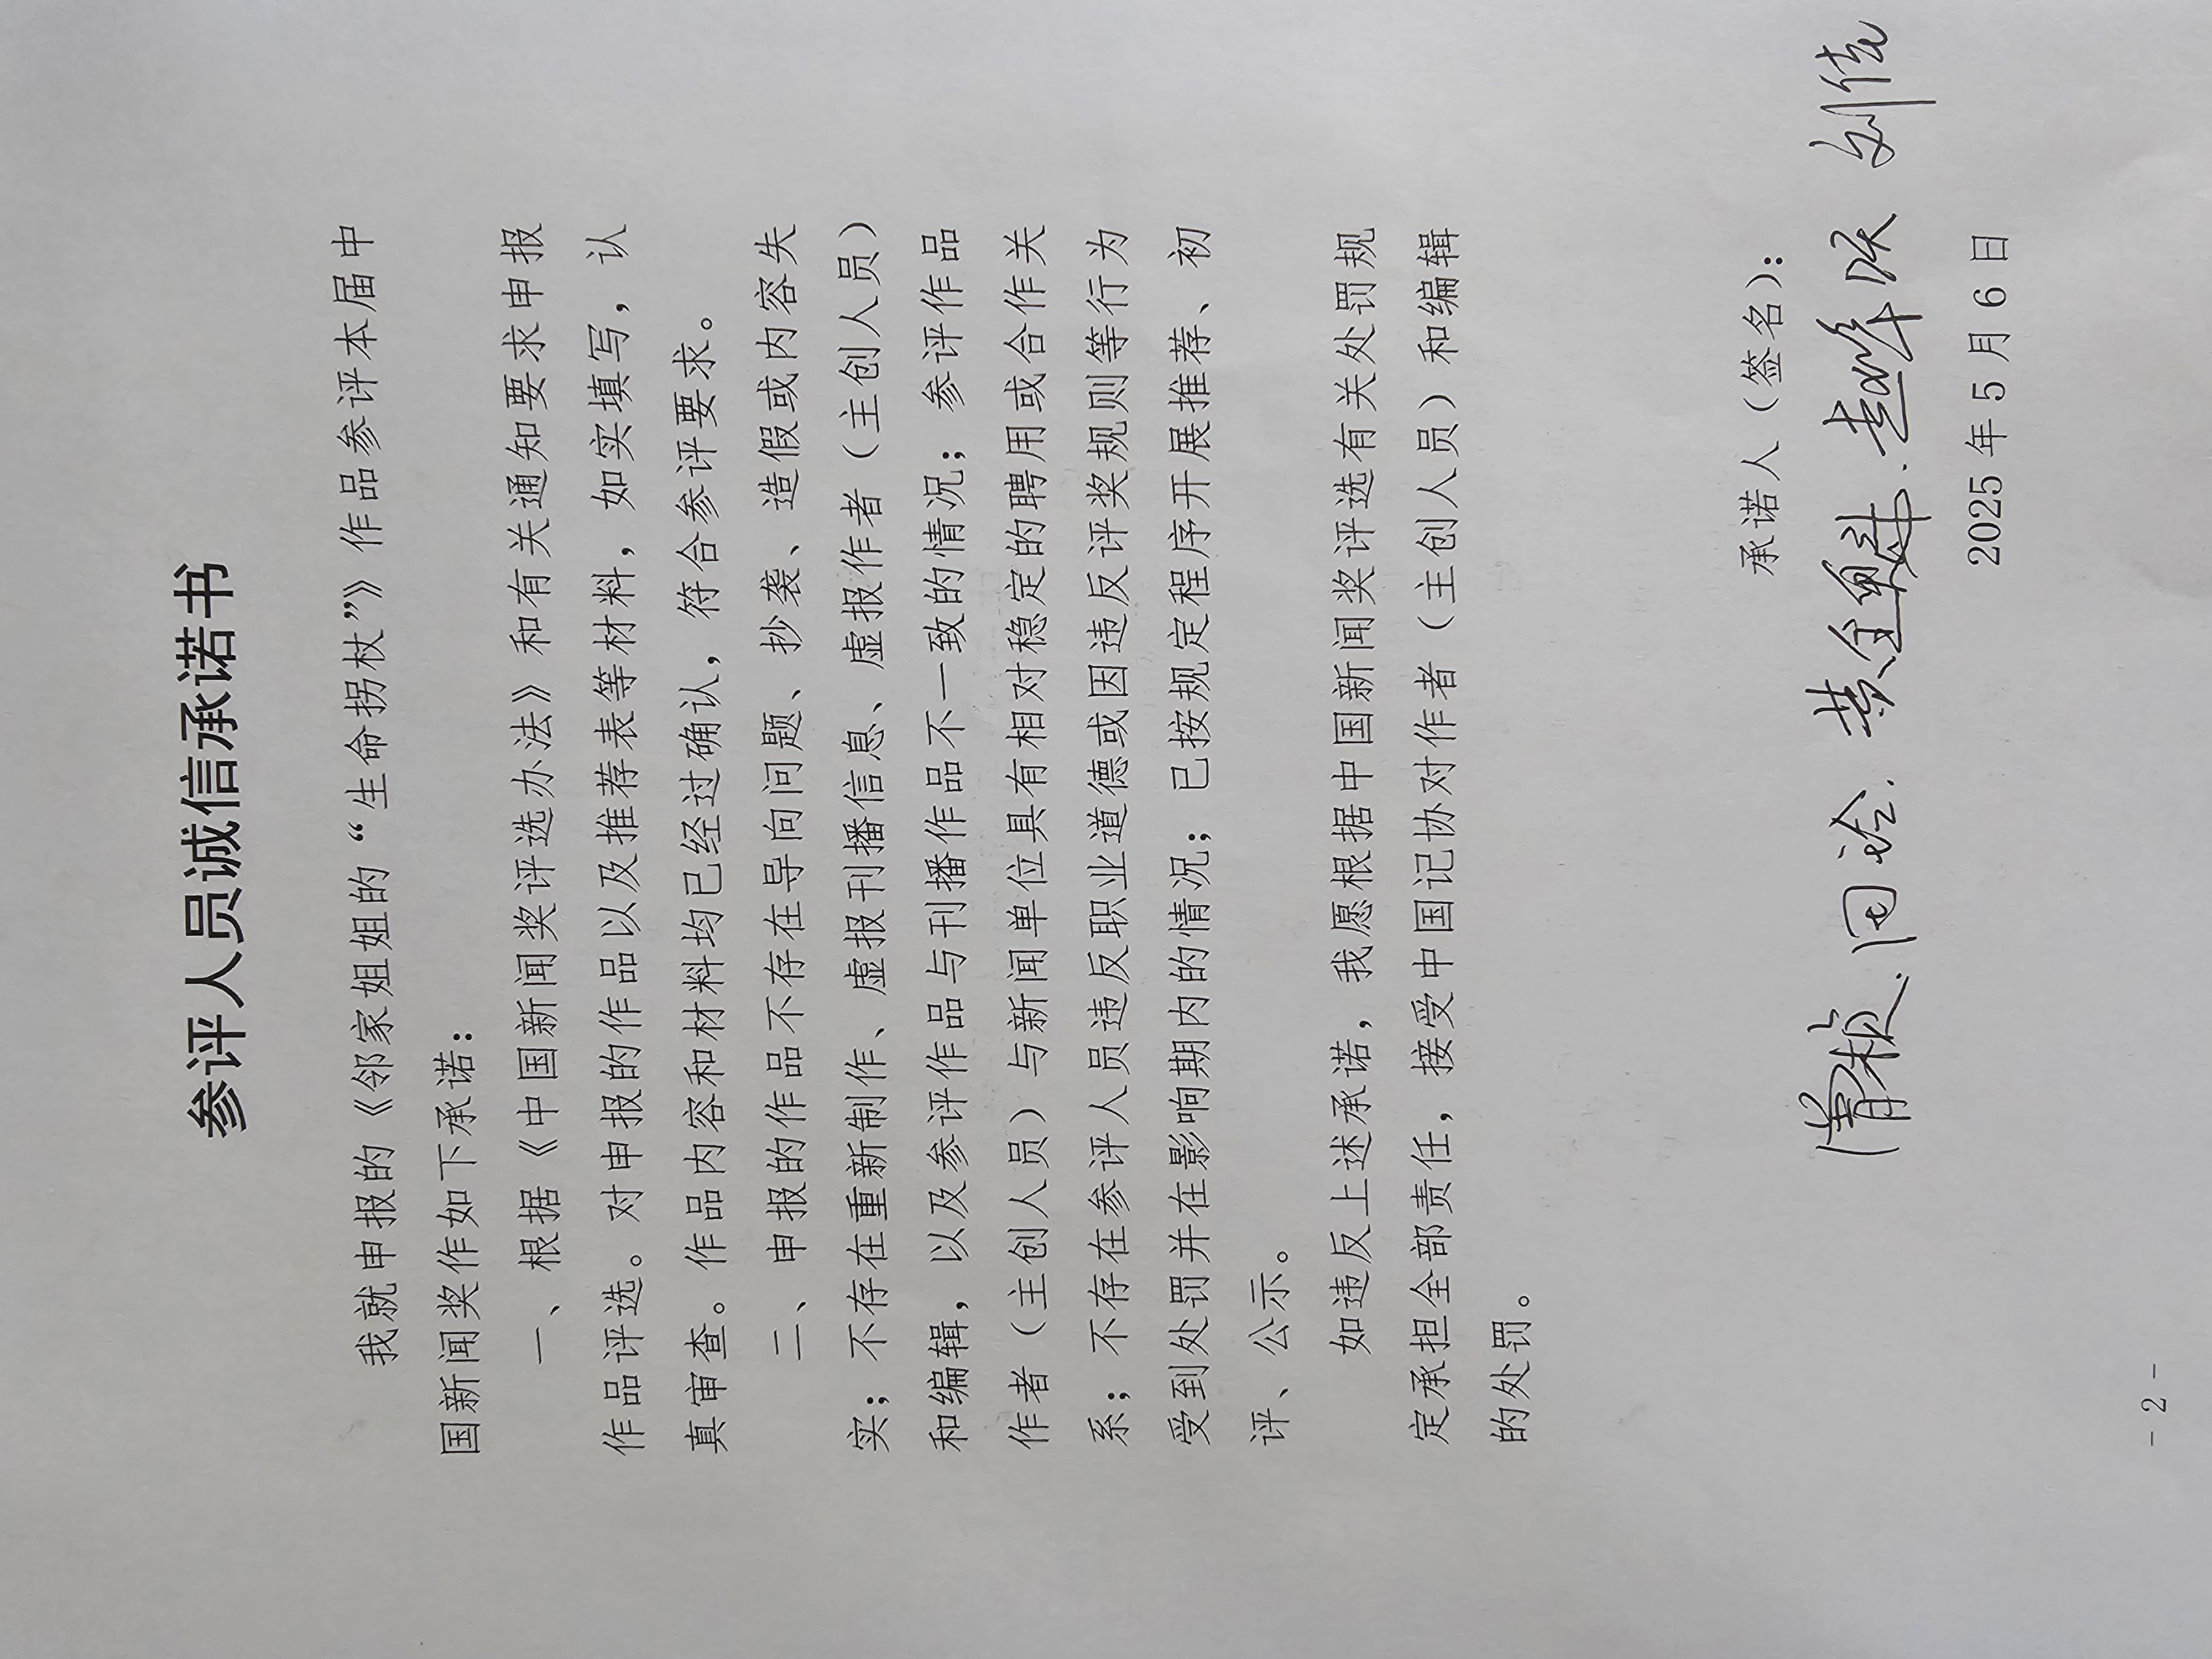 参评人员诚信承诺书
我就申报的《邻家姐姐的“生命拐杖”》作品参评本届中
国新闻奖作如下承诺：
一、根据《中国新闻奖评选办法》和有关通知要求申报
作品评选。对申报的作品以及推荐表等材料，如实填写，认
真审查。作品内容和材料均已经过确认，符合参评要求。
二、申报的作品不存在导向问题、抄袭、造假或内容失
实；不存在重新制作、虚报刊播信息、虚报作者（主创人员）
和编辑，以及参评作品与刊播作品不一致的情况；参评作品
作者（主创人员）与新闻单位具有相对稳定的聘用或合作关
系；不存在参评人员违反职业道德或因违反评奖规则等行为
受到处罚并在影响期内的情况；已按规定程序开展推荐、初
评、公示。
如违反上述承诺，我愿根据中国新闻奖评选有关处罚规
定承担全部责任，接受中国记协对作者（主创人员）和编辑
的处罚。
承诺人（签名）：
田玲 刘佳
2025年5月6日
- 2 -